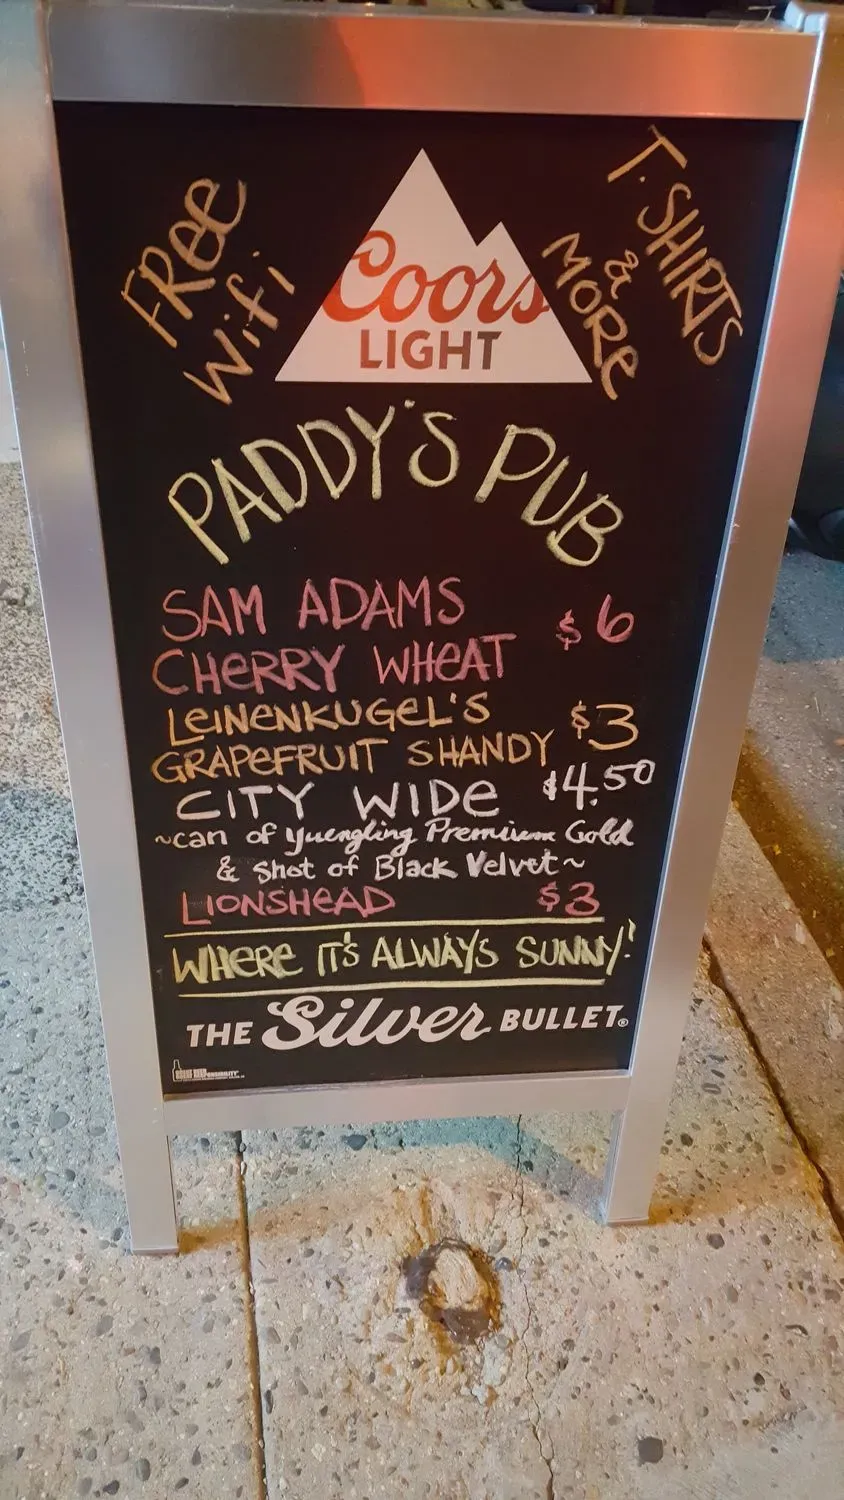 FRee
Wifi
T-SHIRTS
&
MORe
Coors
LIGHT
PADDY'S PUB
SAM ADAMS
CHeRRY WHeAT $6
LeiNeNKUGeL'S
GRAPeFRUIT SHANDY $3
CITY WiDe $4.50
~can of Yuengling Premium Gold
& Shot of Black Velvet~
LIONSHeAD $3
WHeRe IT'S ALWAYS SUNNY!
THE Silver BULLET®